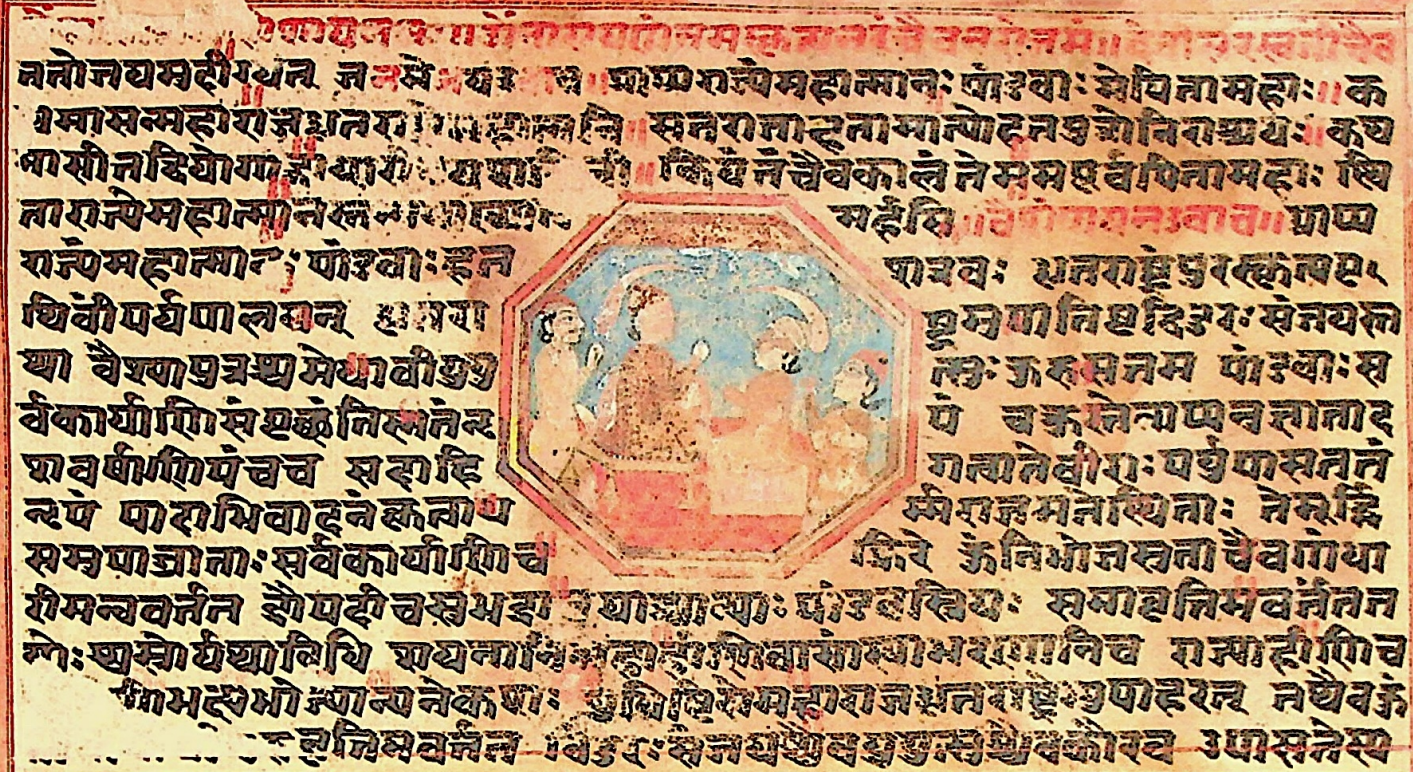 नारायणंनमस्कृत्यनरंचैवनरोत्तमं॥ देवींसरस्वतींचैव
ततोजयमुदीरयेत् जनमेजयउवाच॥ प्राप्यराज्यंमहात्मानः पांडवाः मेपितामहाः॥ क
थमासन्महाराजेधृतरा महात्मनि॥ सतुराजाहतामात्योहतपुत्रोनिराश्रयः॥ कथ
मासीत गांधारी ॥ कियंतंचैवकालंतेममपूर्वपितामहाः स्थि
ताराज्येमहात्मान मर्हसि ॥वैशंपायनउवाच॥ प्राप्य
राज्यंमहात्मानः पांडवाः हत शत्रवः धृतराष्ट्रंपुरस्कृत्यपृ
थिवींपर्यपालयन् धृतरा ष्ट्रमुपातिष्टद्विदुरः संजयस्त
था वैश्यापुत्रश्चमेधावीयुयु त्सुः कुरुसत्तम पांडवाः स
र्वकार्याणिसंपृच्छंतिस्मतंनृ पं चक्रुस्तेनाप्यनुज्ञाताद
शवर्षाणिपंचच सदाहि गत्वातेवीराः पर्युपासततं
नृपं पादाभिवादनंकृत्वाध र्मराजमतेस्थिताः तेमूर्द्ध्नि
समुपाघ्राताः सर्वकार्याणिच क्रिरे कुंतिभोजसुताचैवगांधा
रीमन्ववर्त्तत द्रौपदीचसुभद्रा याश्चान्याः पांडवस्त्रियः समांवृत्तिमवर्त्तंतत
योः श्वश्र्वोर्यथाविधि शयनानिमहार्हाणिवासांस्याभरणानिच राजार्हाणिच
भक्ष्यभोज्यान्यनेकशः युधिष्ठिरोमहाराजधृतराष्ट्रेभ्युपाहरत् तथैवकुं
वृत्तिमवर्त्तत विदुरः संजयश्चैवयुयुत्सुश्चैवकौरव उपासतेस्म